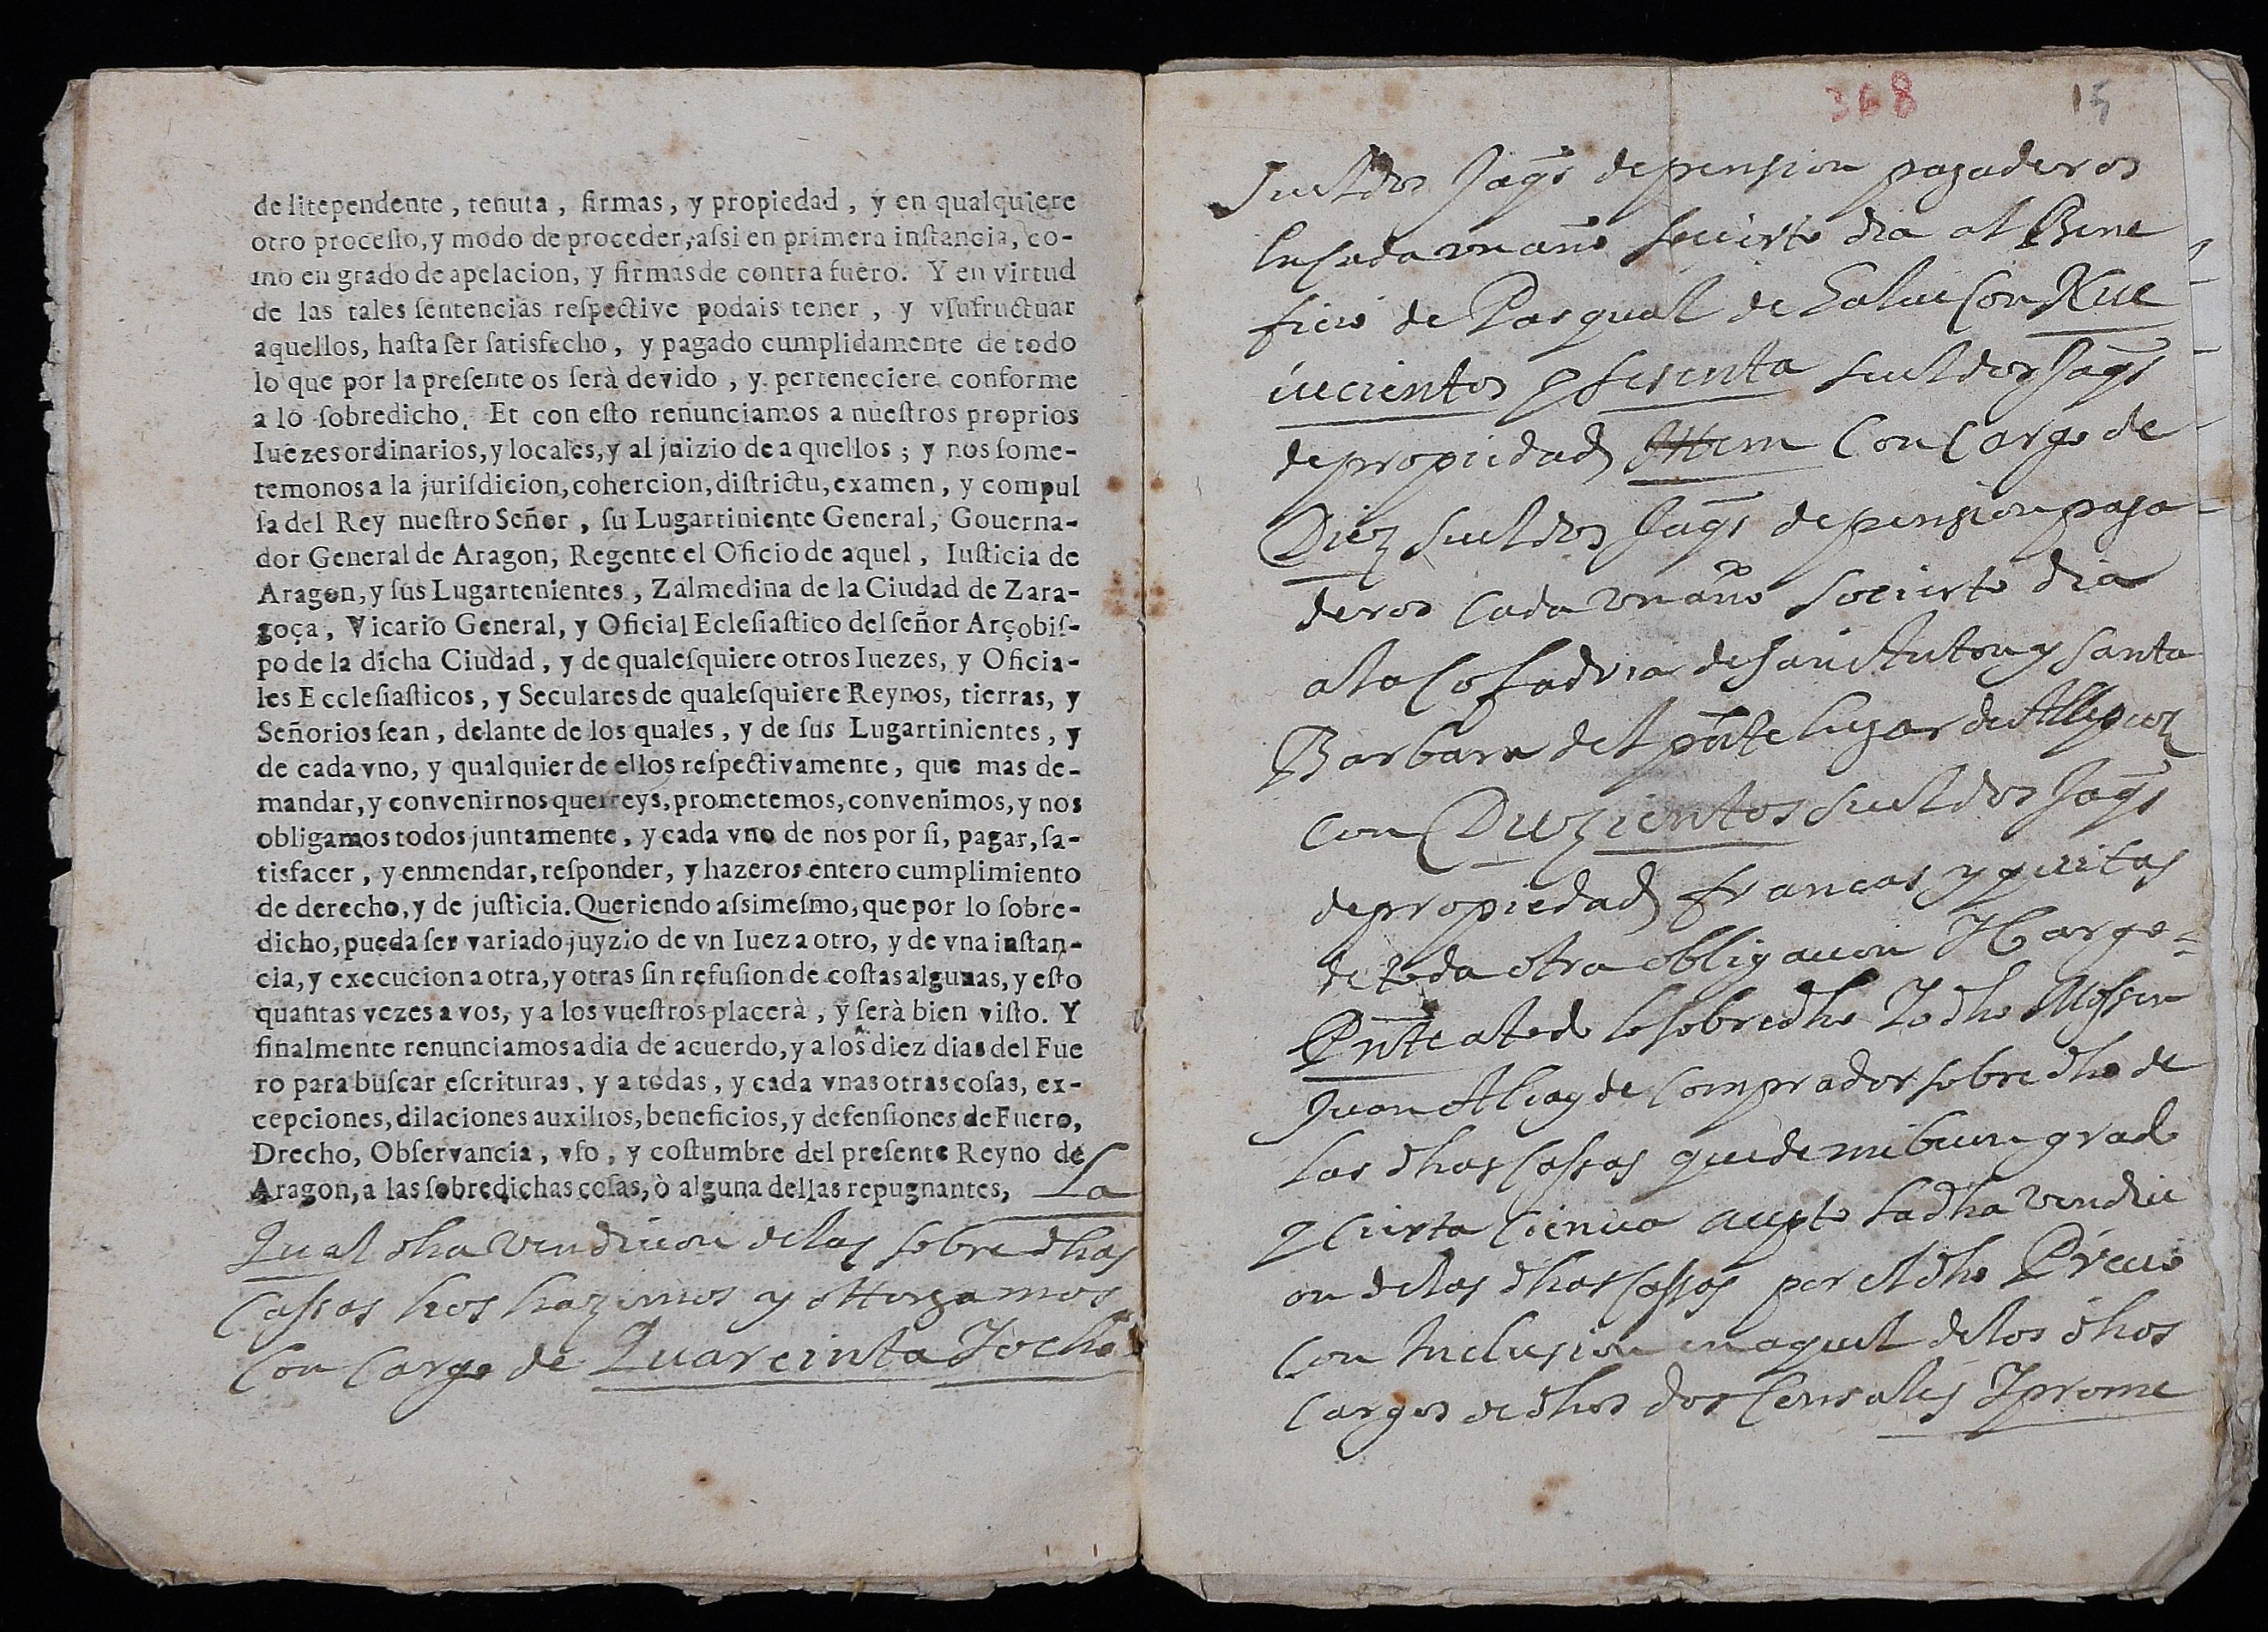 de litependente, tenuta, firmas, y propiedad, y en qualquiere
otro procesſo, y modo de proceder, aſsi en primera inſtancia, co-
mo en grado de apelacion, y firmas de contra fuero. Y en virtud
de las tales ſentencias reſpective podais tener, y vſufructuar
aquellos, haſta ſer ſatisfecho, y pagado cumplidamente de todo
lo que por la preſente os ſerà devido, y perteneciere conforme
a lo ſobredicho. Et con eſto renunciamos a nueſtros proprios
Iuezes ordinarios, y locales, y al juizio de aquellos; y nos ſome-
temonos a la juriſdicion, cohercion, diſtrictu, examen, y compul
ſa del Rey nueſtro Señor, ſu Lugartiniente General, Gouerna-
dor General de Aragon, Regente el Oficio de aquel, Iuſticia de
Aragon, y ſus Lugartenientes, Zalmedina de la Ciudad de Zara-
goça, Vicario General, y Oficial Ecleſiaſtico del ſeñor Arçobiſ-
po de la dicha Ciudad, y de qualeſquiere otros Iuezes, y Oficia-
les Eccleſiaſticos, y Seculares de qualeſquiere Reynos, tierras, y
Señorios ſean, delante de los quales, y de ſus Lugartinientes, y
de cada vno, y qualquier de ellos reſpectivamente, que mas de-
mandar, y convenirnos querreys, prometemos, convenimos, y nos
obligamos todos juntamente, y cada vno de nos por ſi, pagar, ſa-
tisfacer, y enmendar, reſponder, y hazeros entero cumplimiento
de derecho, y de juſticia. Queriendo aſsimeſmo, que por lo ſobre-
dicho, pueda ſer variado juyzio de vn Iuez a otro, y de vna inſtan-
cia, y execucion a otra, y otras ſin refuſion de coſtas algunas, y eſto
quantas vezes a vos, y a los vueſtros placerà, y ſerà bien viſto. Y
finalmente renunciamos a dia de acuerdo, y a los diez dias del Fue
ro para buſcar eſcrituras, y a todas, y cada vnas otras coſas, ex-
cepciones, dilaciones auxilios, beneficios, y defenſiones de Fuero,
Drecho, Obſervancia, vſo, y coſtumbre del preſente Reyno de
Aragon, a las ſobredichas coſas, ò alguna dellas repugnantes, La
Qual dha vendicion delas sobredhas
Cassas hos hazemos y ottorgamos
Con Cargo de Quareinta Yocho
368 15
sueldos Jaqs de pension pagaderos
en Cada un año so cierto dia al Bene
ficio de Pasqual de con Nue
uecientos y sesenta sueldos Jaqs
de propiedad Ittem Con Cargo de
Diez sueldos Jaqs de pension paga-
deros Cada un año so cierto dia
ala Cofadria de San Anton y Santa
Barbara del pnte lugar de Allepuz
con Duzientos sueldos Jaqs
de propiedad francas y quitas
de toda otra obligacion Y Cargo
Pnte atodo lo sobredho Yo dho Mossen
Juan comprador sobredho de
las dhas Cassas que de mi buen grado
y cierta ciencia acepto la dha vendici
on delas dhas Cassas por el dho Precio
con Inclusion en aquel delos dhos
Cargos de dhos dos Censales Y prome